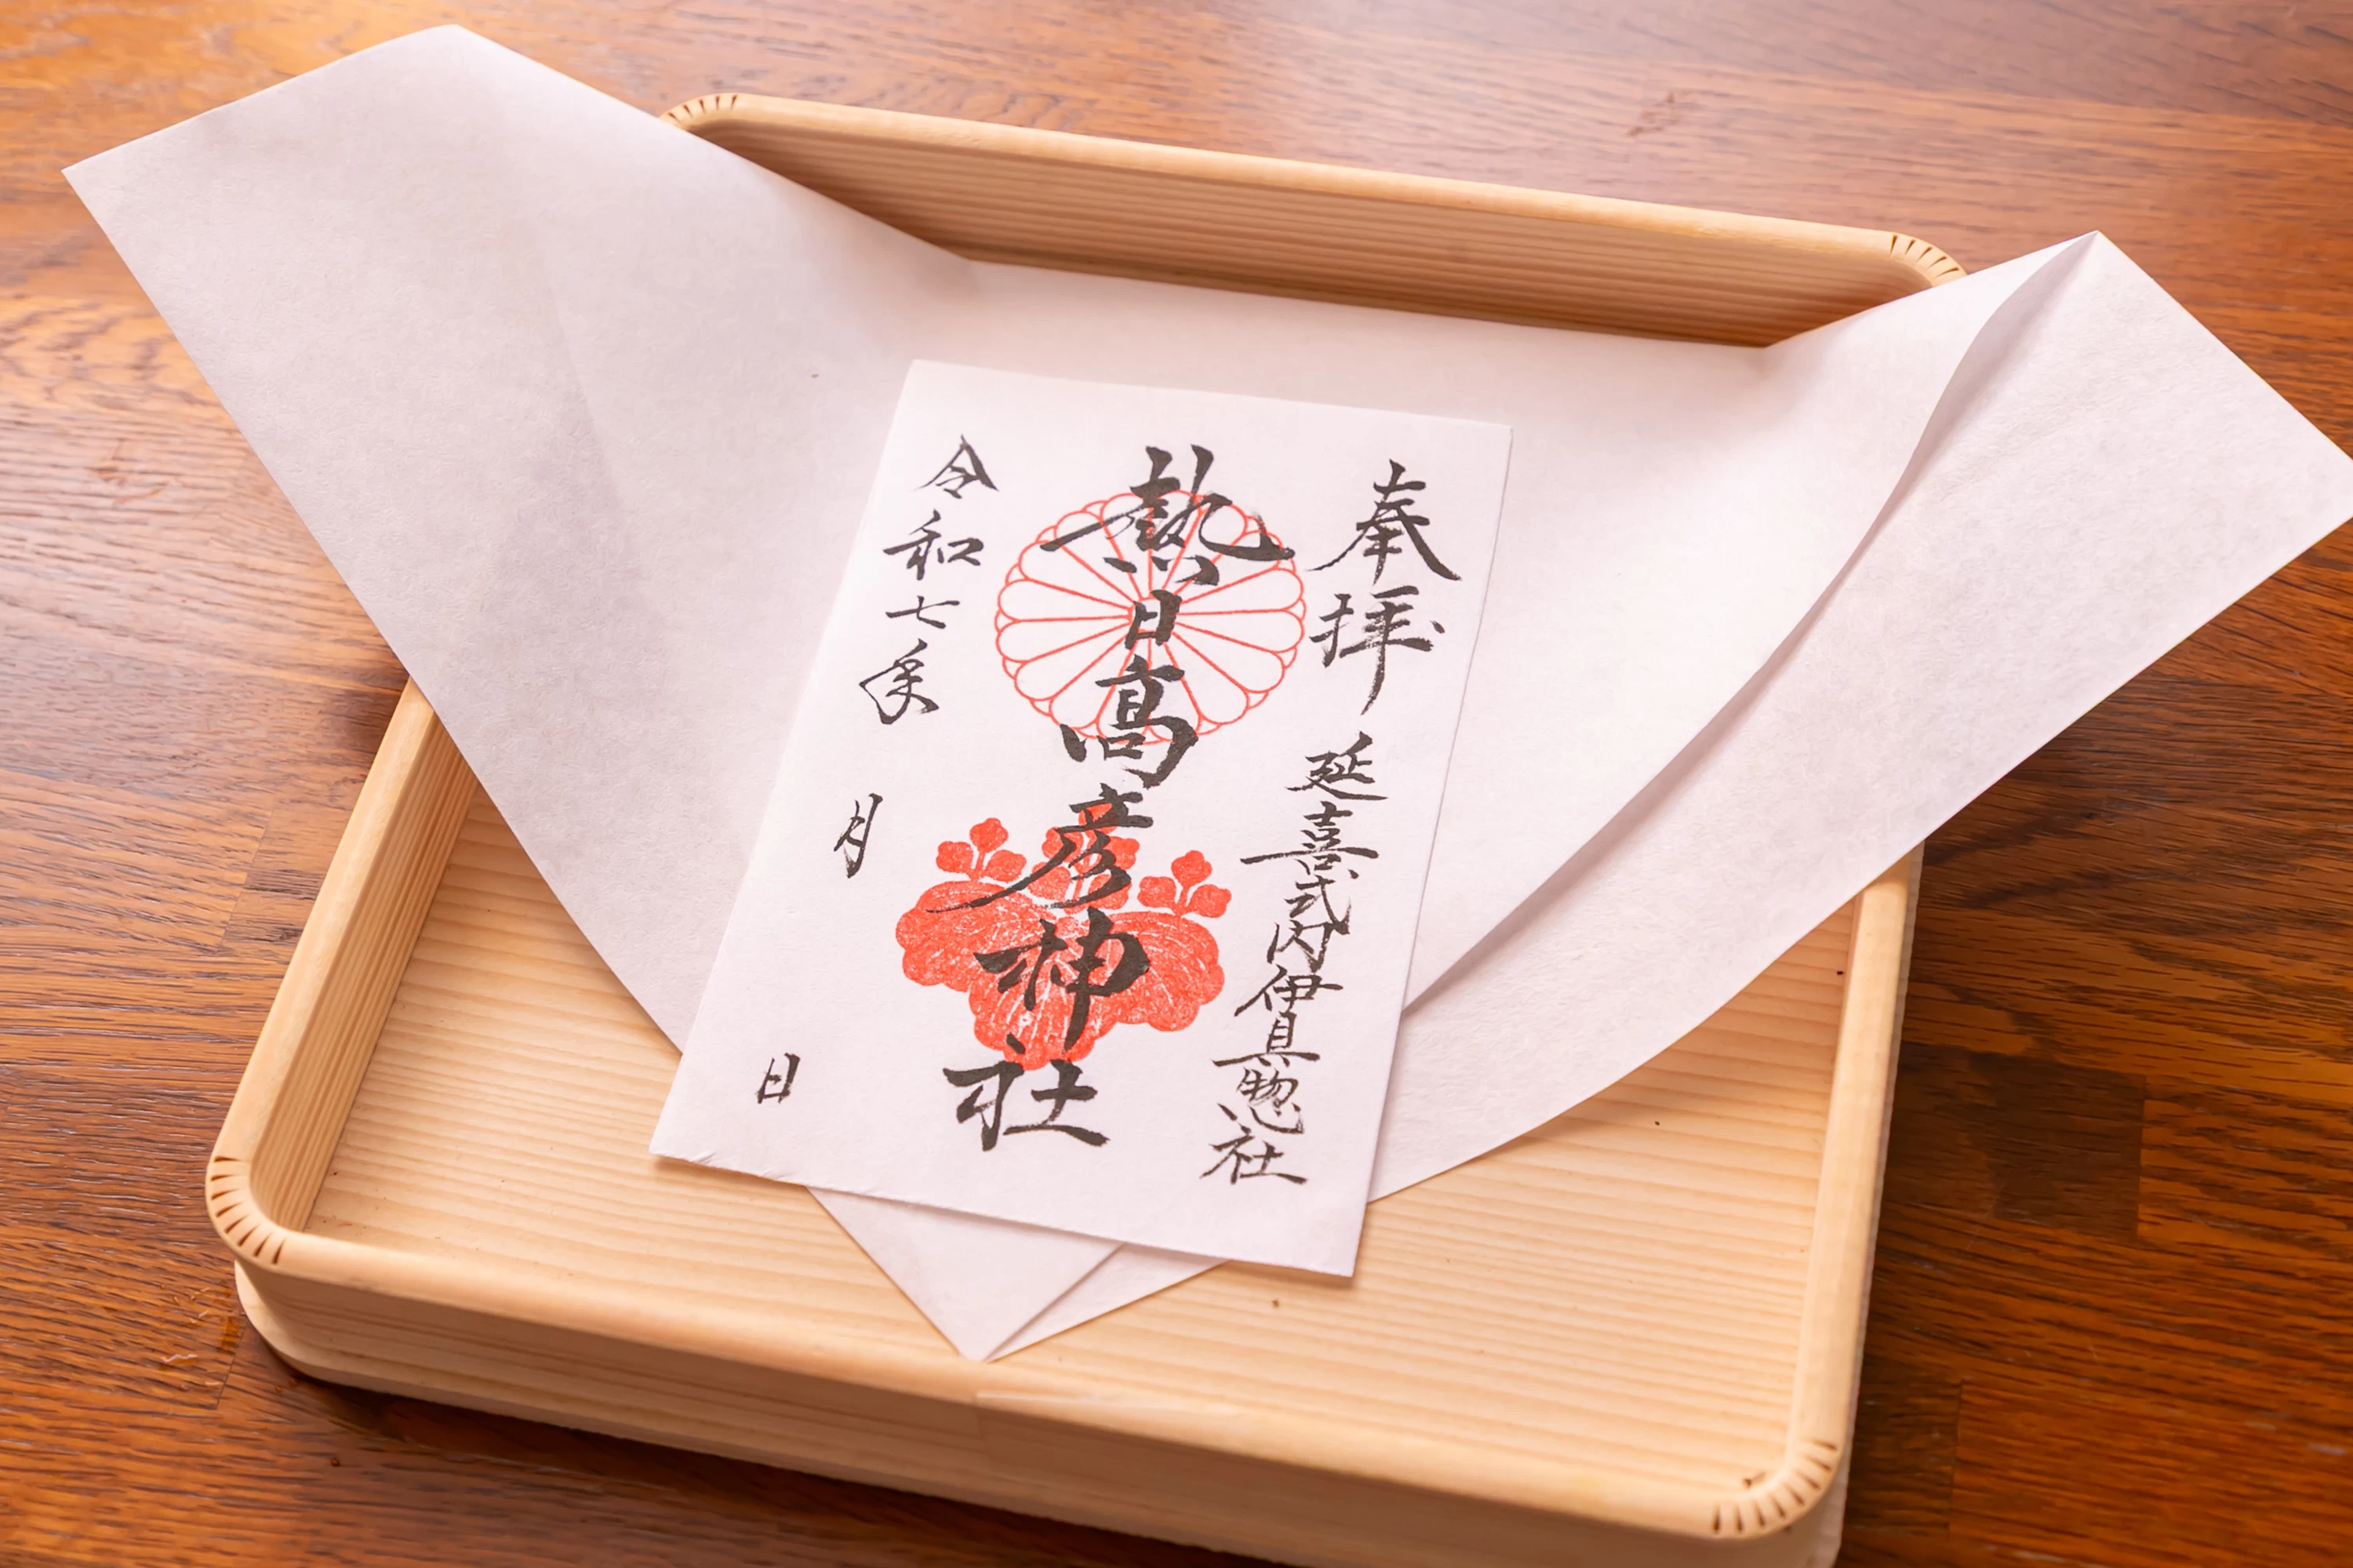 奉拝 延喜式内伊具惣社
熱日高彦神社
令和七年 月 日